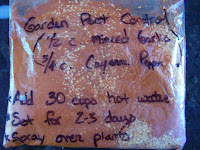 Garden Pest Control
(1/2 c. minced Garlic
3/4 c. Cayenne Pepper
• Add 30 cups hot water
• Set for 2-3 days
• Spray over plants